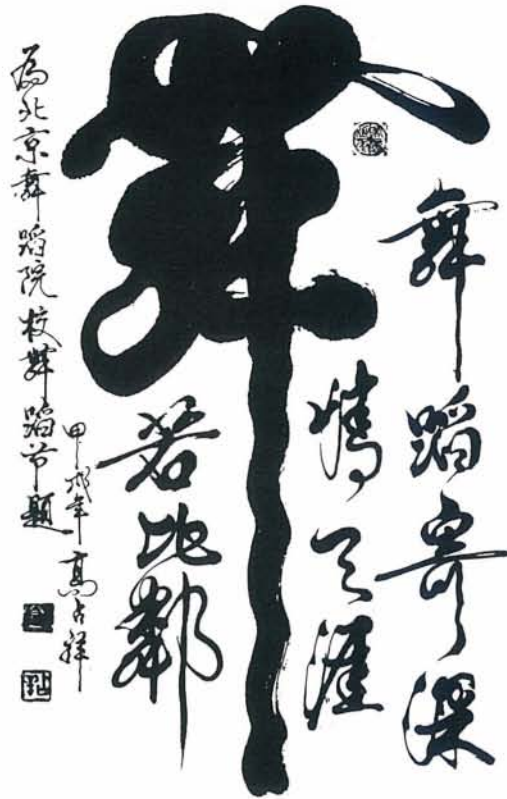 舞
舞蹈寄深
情天涯
若比鄰
為北京舞蹈院校舞蹈节題
甲戌年 高占祥